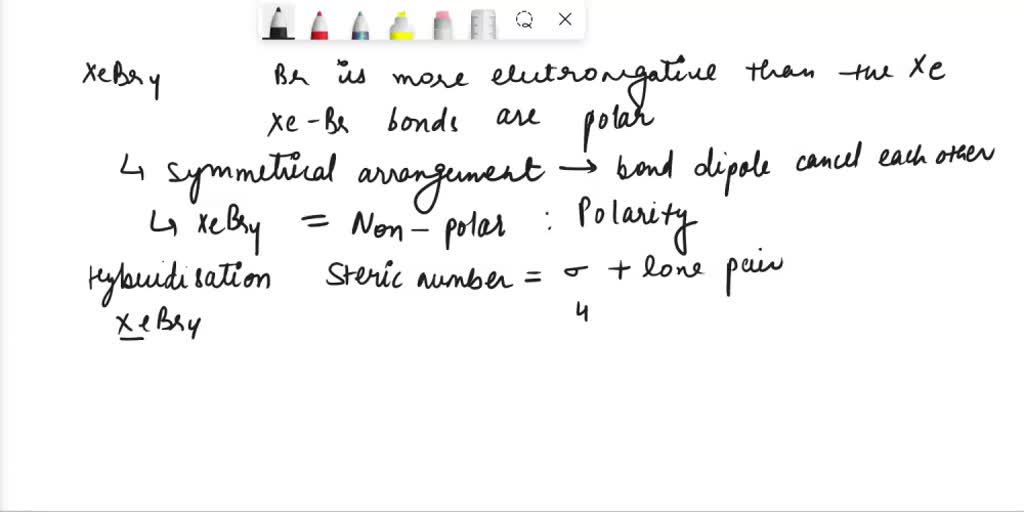 XeBr4 Br is more electronegative than the Xe
Xe-Br bonds are polar
↳ symmetrical arrangement → bond dipole cancel each other
↳ XeBr4 = Non-polar : Polarity
Hybridisation Steric number = σ + lone pair
4
XeBr4